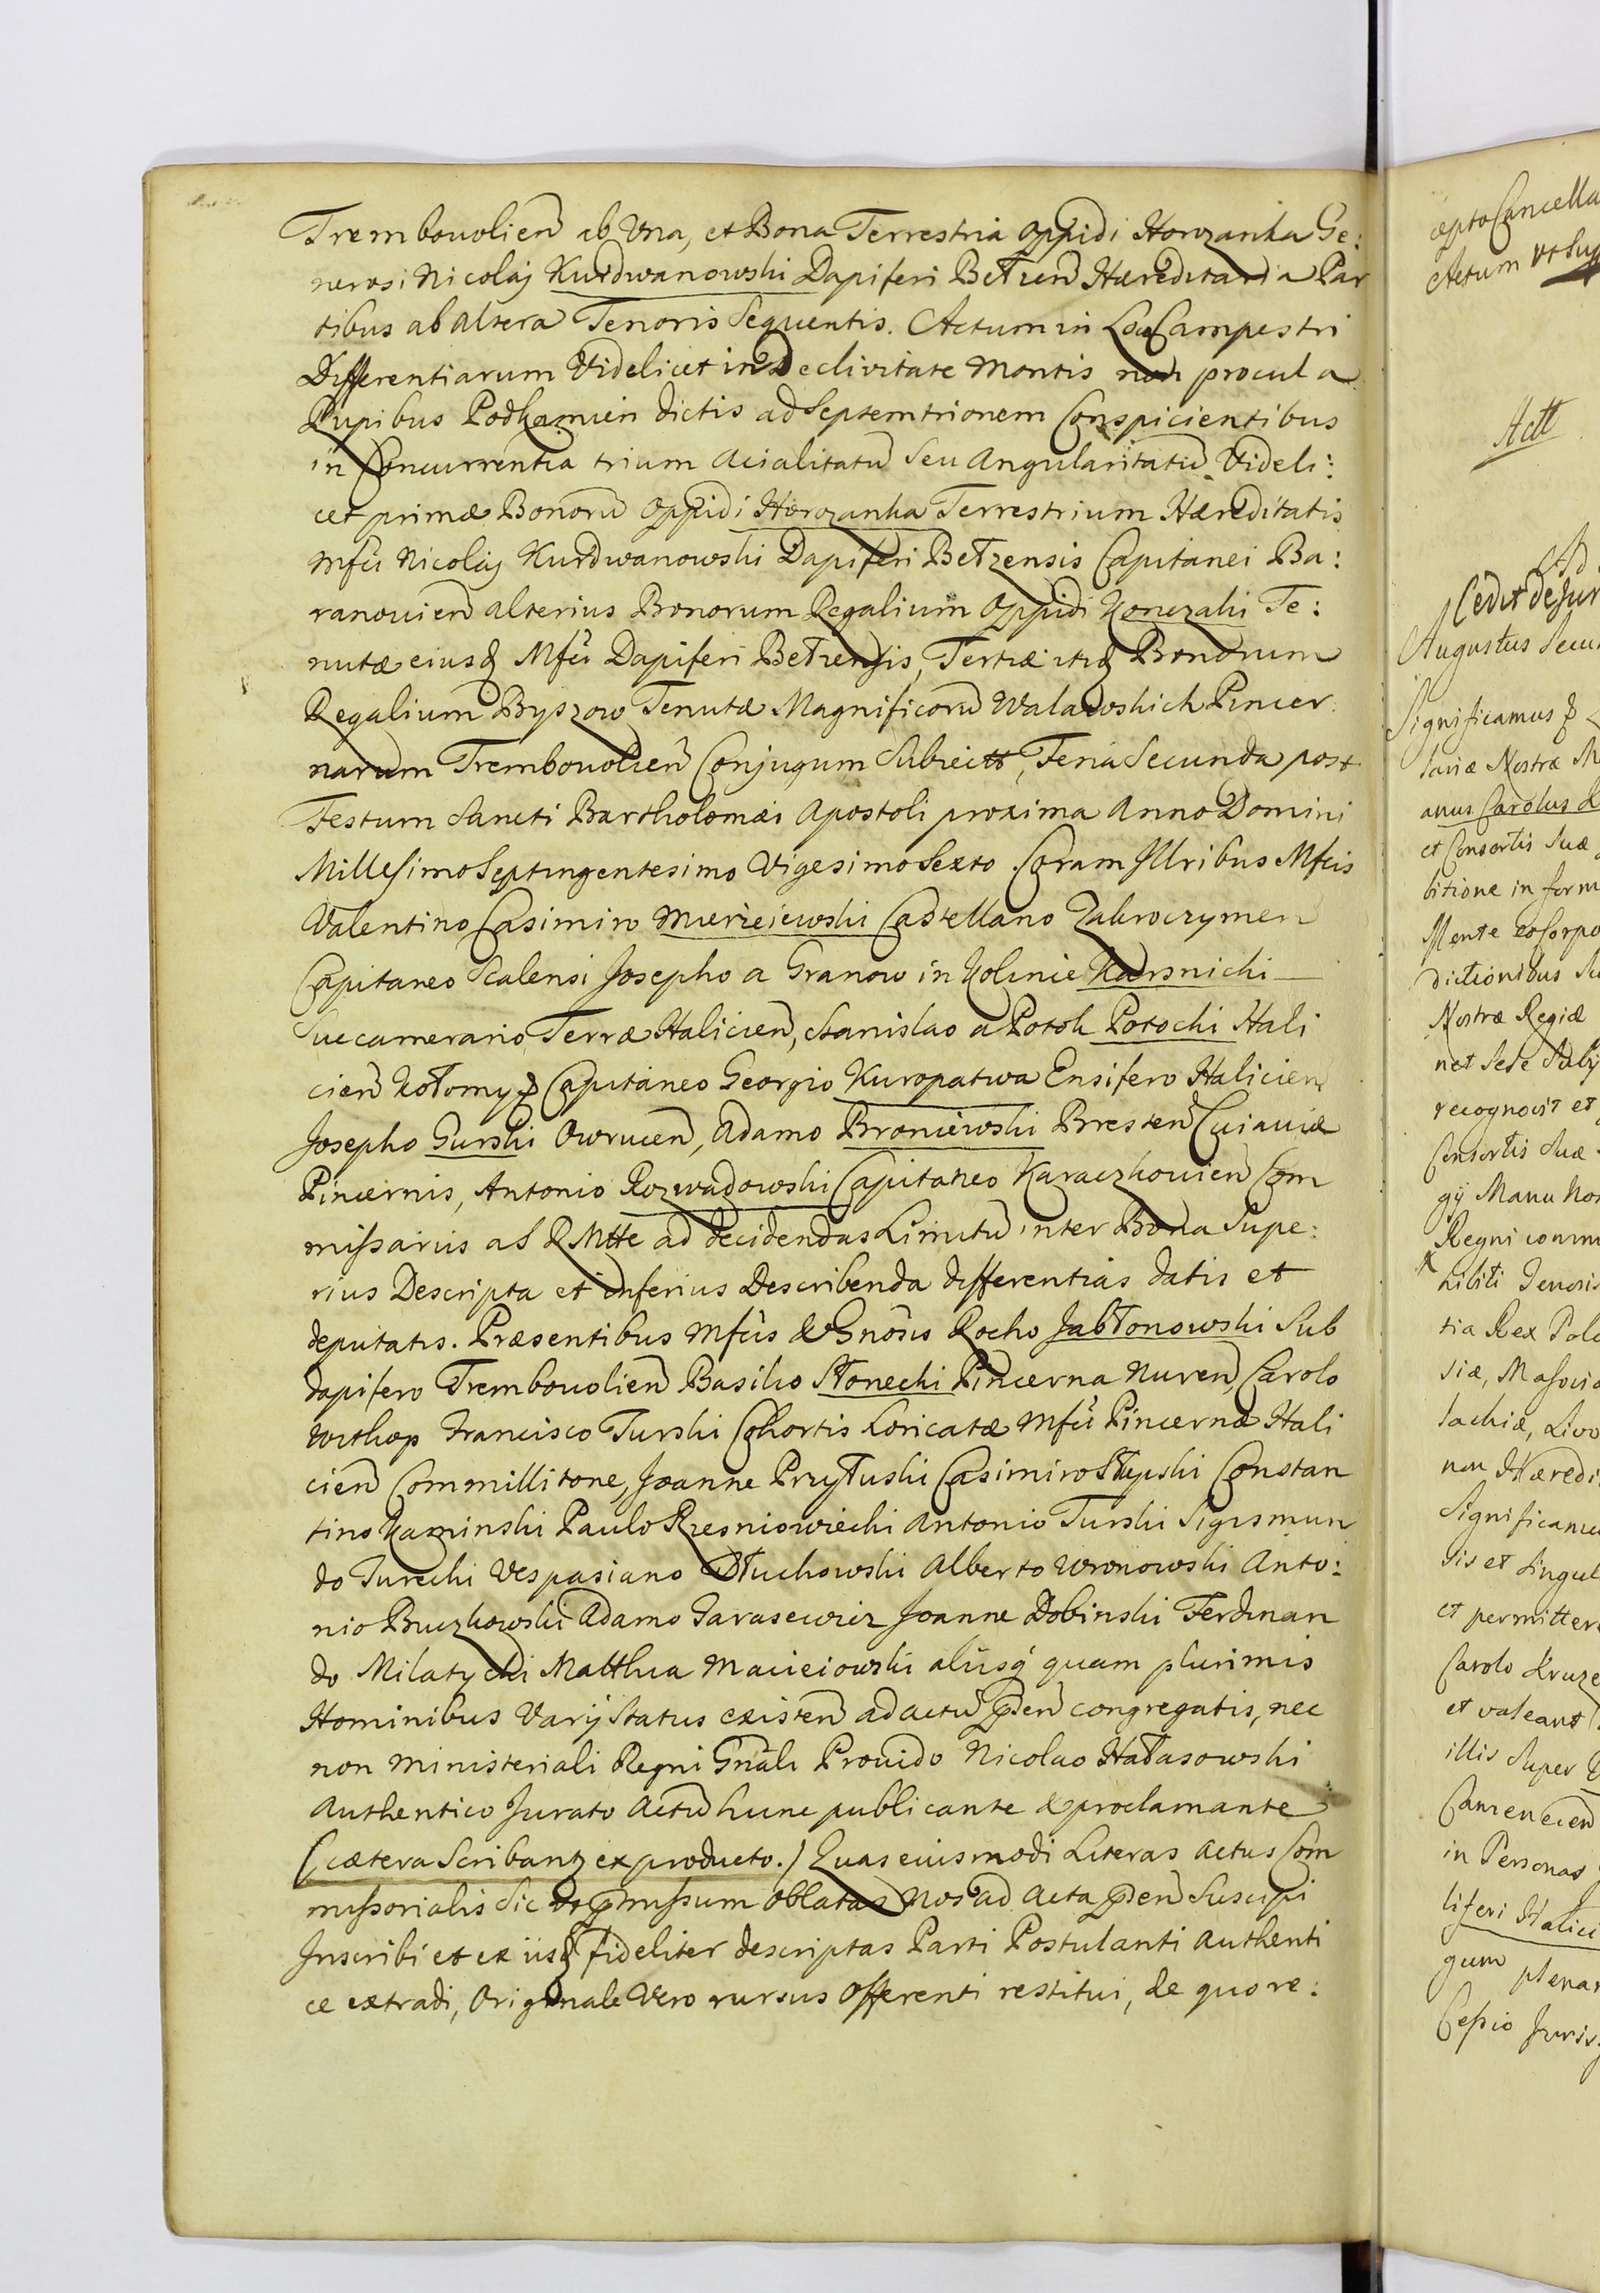 Trembovolien ab Una, et Bona Terrestria Oppidi Horozanka Ge:
nerosi Nicolaj Kurdwanowski Dapiferi Bełzen Hæreditaria Par
tibus ab altera Tenoris Sequentis. Actum in Loco Campestri
Differentiarum Videlicet in Declivitate Montis non procul a
Rupibus Podkamien dictis ad Septemtrionem Conspicientibus
in Concurrentia trium Acialitatu Seu Angularitatu Videli:
cet primæ Bonoru Oppidi Horozanka Terrestrium Hæreditatis
Mfci Nicolaj Kurdwanowski Dapiferi Bełzensis Capitanei Ba:
ranovien alterius Bonorum Regalium Oppidi Konczaki Te:
nutæ eiusq Mfci Dapiferi Bełzensis, Tertiæ itq Bonorum
Regalium Byszow Tenutæ Magnificoru Walawskich Pincer
narum Trembovolien Conjugum Subiectt, Feria Secunda post
Festum Sancti Bartholomæi Apostoli proxima Anno Domini
Millesimo Septingentesimo Vigesimo Sexto Coram Illribus Mfcis
Valentino Casimiro Mierzeiewski Castellano Zakroczymen
Capitaneo Scalensi Josepho a Granow in Kolinie Karsnicki
Succamerario Terræ Halicien, Stanislao a Potok Potocki Hali
cien Kołomyq Capitaneo Georgio Kuropatwa Ensifero Halicien
Josepho Gurski Owrucen, Adamo Broniewski Bresten Cuiaviæ
Pincernis, Antonio Rozwadowski Capitaneo Karaczkovien Com
missariis a S R Mtte ad decidendas Limitu inter Bona Supe:
rius Descripta et inferius Describenda differentias datis et
deputatis. Præsentibus Mfcis & Gnosis Rocho Jabłonowski Sub
dapifero Trembovolien Basilio Słonecki Pincerna Nuren, Carolo
Witkop Francisco Turski Cohortis Loricatæ Mfci Pincernæ Hali
cien Commillitone, Joanne Przyłuski Casimiro Słupski Constan
tino Kaminski Paulo Rzesniowiecki Antonio Turski Sigismun
do Turecki Vespasiano Dłuchowski Alberto Wronowski Anto:
nio Buczkowski Adamo Tarasewicz Joanne Dobinski Ferdinan
do Milatycki Matthia Macieiowski aliisq quam plurimis
Hominibus Varij Status existen ad actu pden congregatis, nec
non Ministeriali Regni Gnali Provido Nicolao Hałasowski
Authentico Jurato Actu hunc publicante & proclamante
(cætera Scribantz ex producto.) Quas eiusmodi Literas Actus Com
missorialis Sic ut pmissum Oblatas Nos ad Acta pden Suscipi
Inscribi et ex iisq fideliter descriptas Parti Postulanti Authenti
ce extradi, Originale Vero rursus Offerenti restitui, de quo re:
cepto Cancella
Actum ut Sup
Actt
Cedit de Jur
Augustus Secun
Significamus
laviæ Nostræ
anus Carolus
et Consortis Suæ
bitione in form
Mente et Corpo
dictionibus
Nostræ Regiæ
net Sese Subij
recognovit et
Consortis Suæ
gij Manu
Regni comm
hibiti Tenoris
tia Rex Polo
siæ, Masovia
lachiæ, Livo
non Hæredi
Significamus
sis et Singul
et permittere
Carolo Kruze
et valeant
illis Super
Camenecen
in Personas
liferi Halici
gum plenar
Cessio Juris